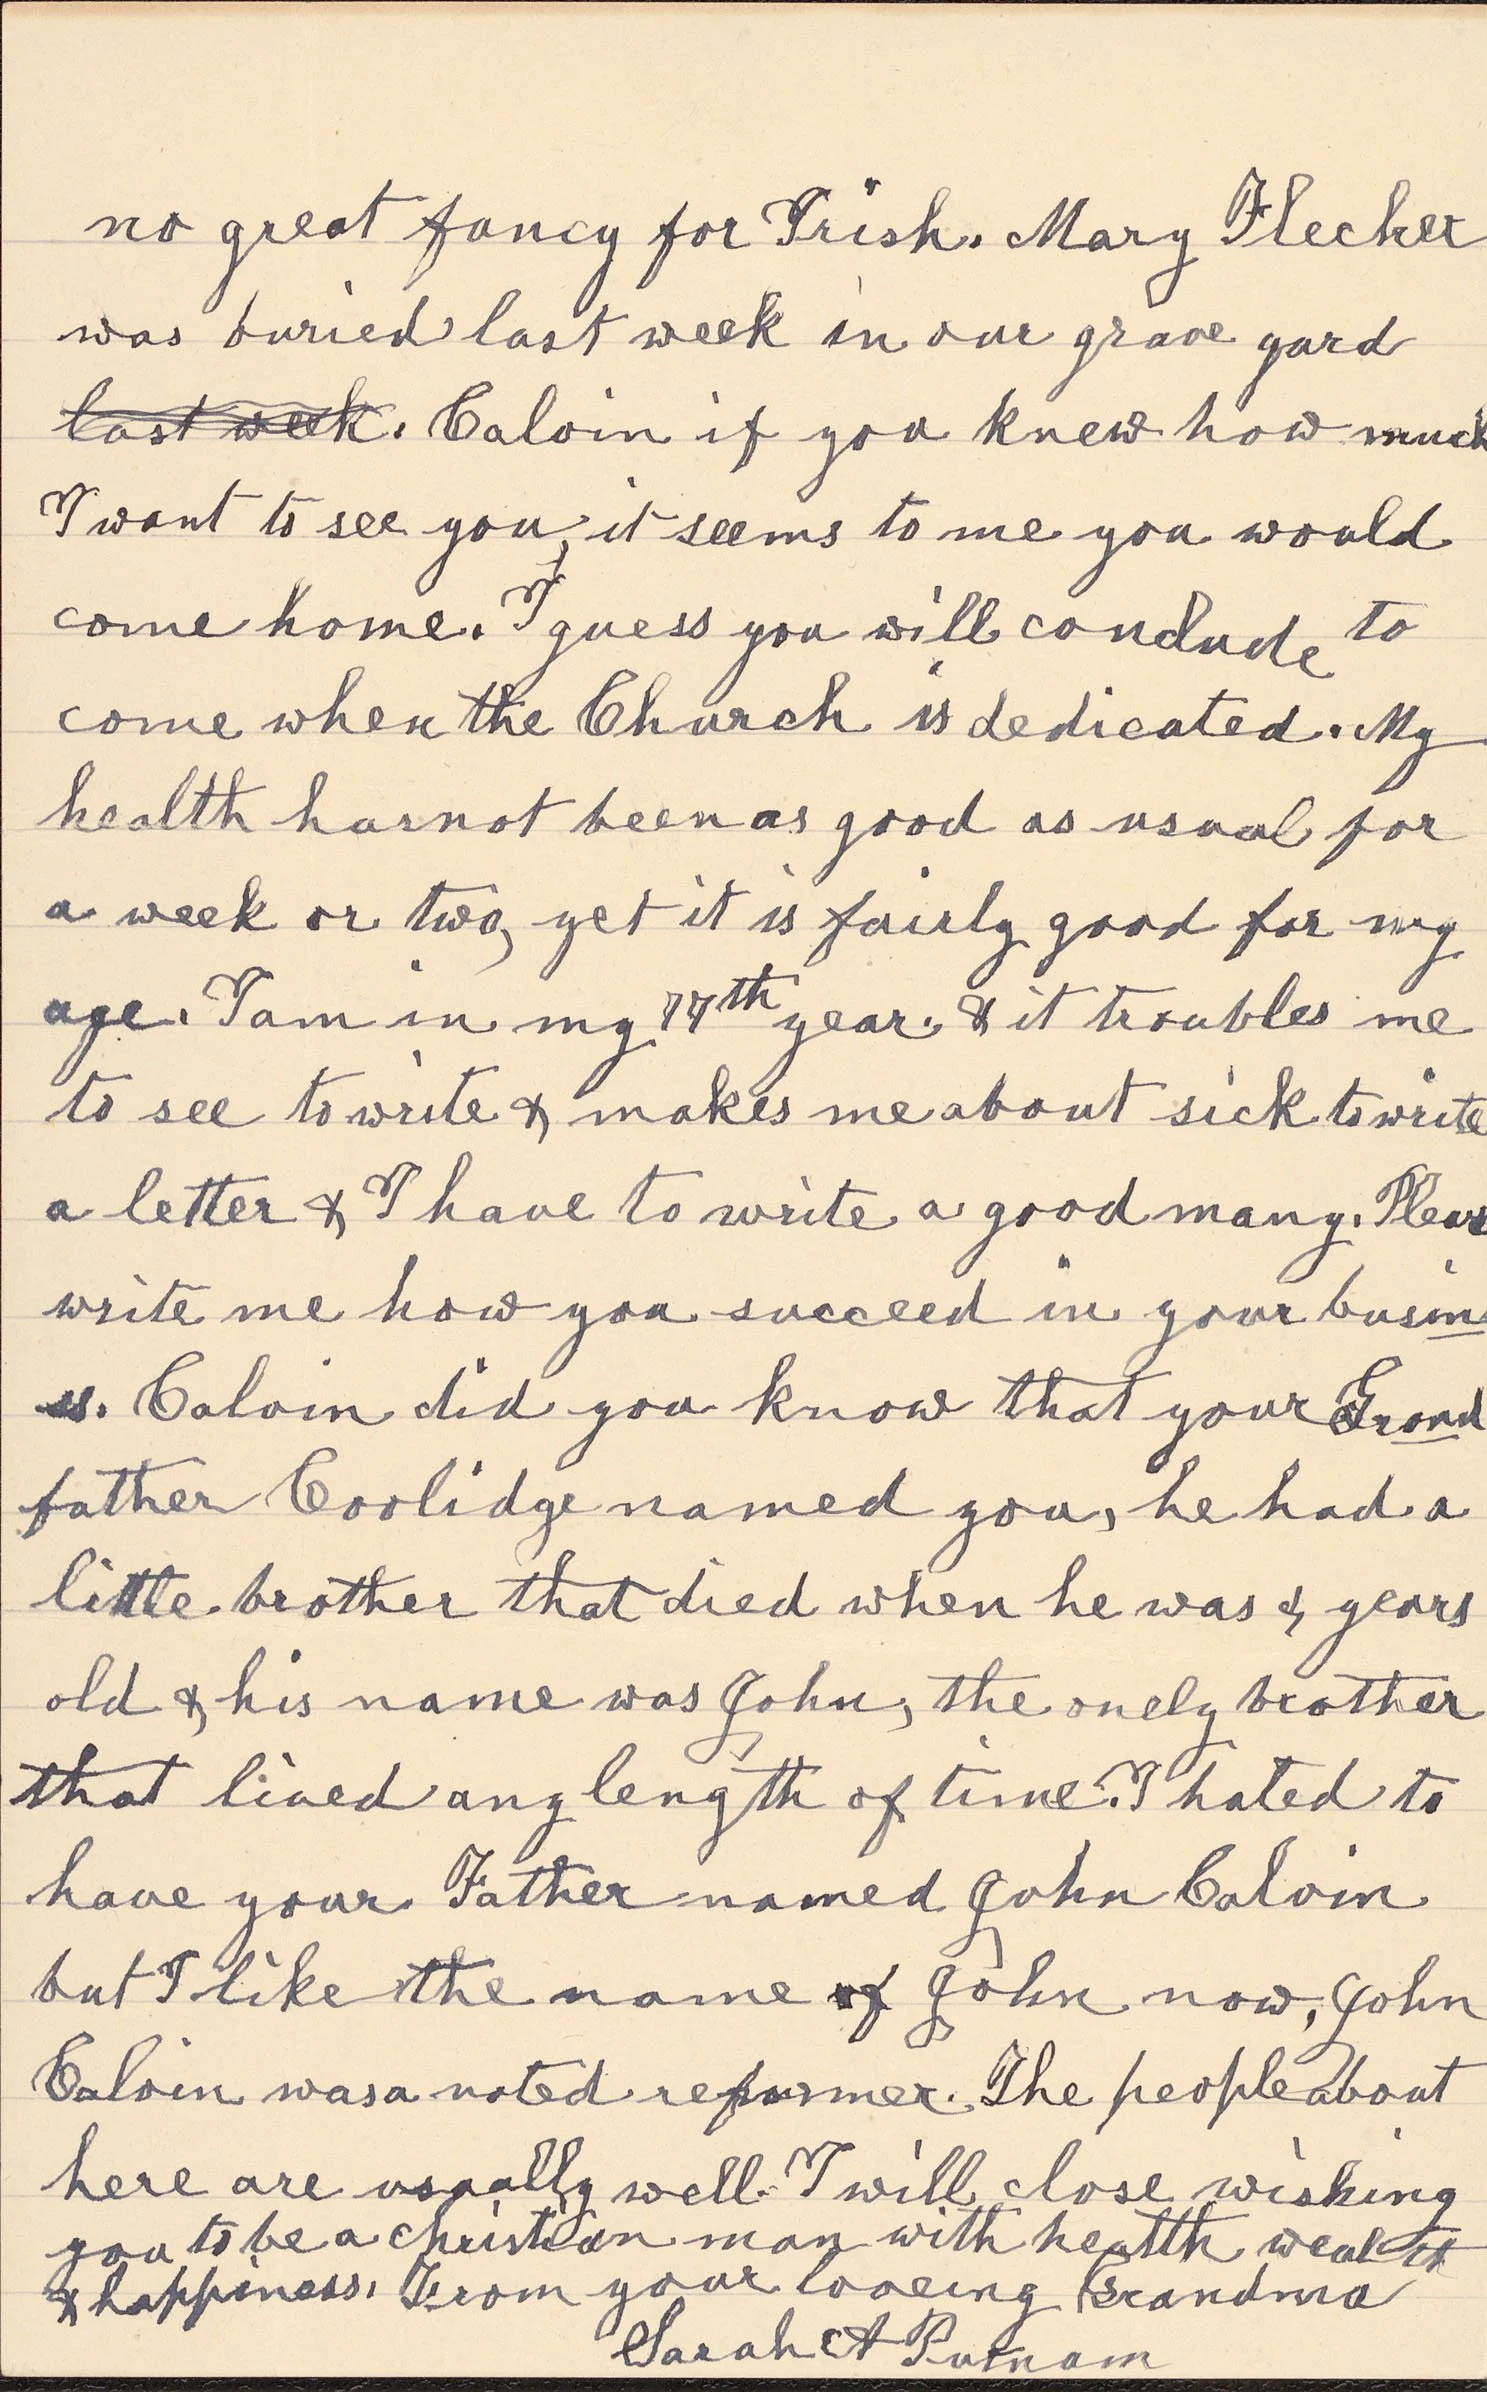 no great fancy for Irish. Mary Flecher
was buried last week in our grave yard
last week. Calvin if you knew how much
I want to see you, it seems to me you would
come home. I guess you will conclude to
come when the Church is dedicated. My
health has not been as good as usual for
a week or two, yet it is fairly good for my
age. I am in my 77th year. & it troubles me
to see to write & makes me about sick to write
a letter & I have to write a good many. Please
write me how you succeed in your busin
es. Calvin did you know that your Grand
father Coolidge named you, he had a
little brother that died when he was years
old & his name was John, the onely brother
that lived any length of time. I hated to
have your Father named John Calvin
but I like the name of John now, John
Calvin was a noted reformer. The people about
here are usually well. I will close wishing
you to be a christian man with health wealth
& happiness. From your loveing Grandma
Sarah A Putnam